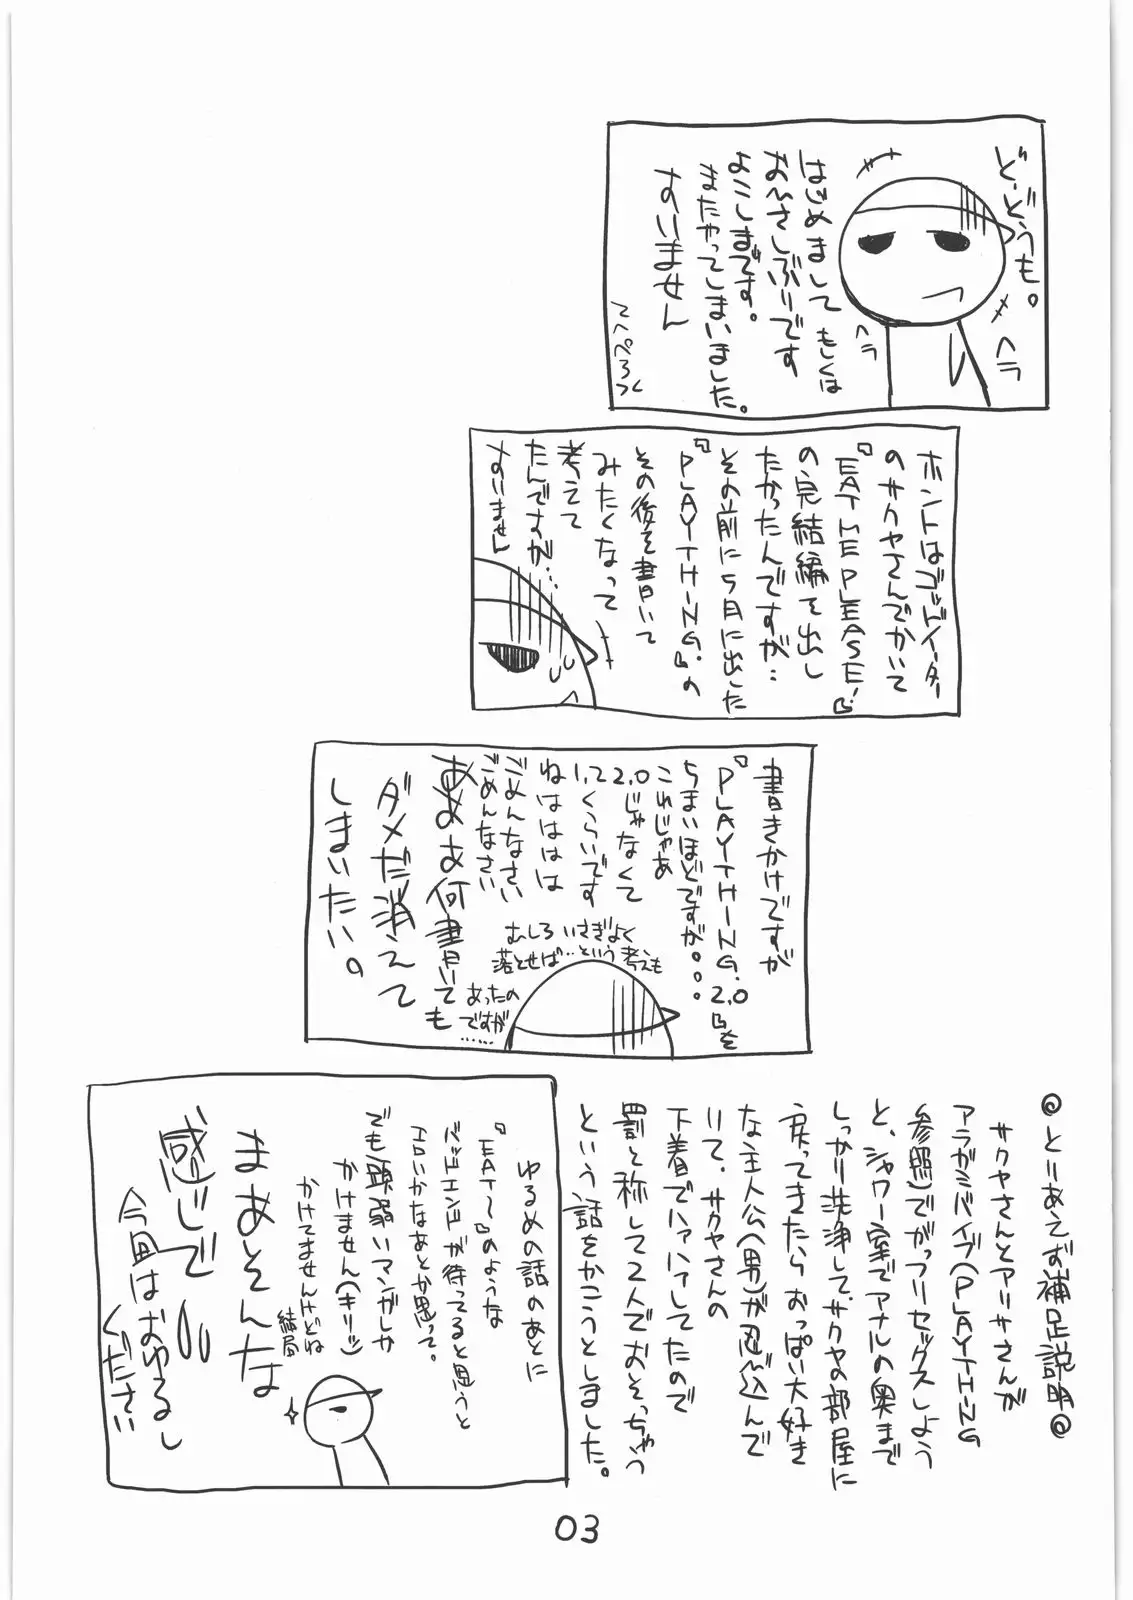 ど、どうも。
はじめまして もしくは
おひさしぶりです
よこしまです。
またやってしまいました。
すいません
ヘラ
ヘラ
ホントはゴッドイーター
のサクヤさんでかいて
『EAT ME PLEASE!』
の完結編を出し
たかったんですが…
その前に5月に出した
『PLAYTHING.』の
その後を書いて
みたくなって
考えて
たんですが…
すいません
書きかけですが
『PLAYTHING.2.0』を
ちまいほどですが...
これじゃあ
2.0じゃなくて
1.2くらいです
ねはははは
ごめんなさい
ごめんなさい
ああぁ何書いても
ダメだ消えて
しまいたい。
むしろいさぎよく
落とせば…という考えも
あったの
ですが
……
◎とりあえず補足説明◎
サクヤさんとアリサさんが
アラガミバイブ(PLAYTHING
参照)でがっつりセックスしよう
と、シャワー室でアナルの奥まで
しっかり洗浄して、サクヤの部屋に
戻ってきたらおっぱい大好き
な主人公(男)が忍び込んで
いて、サクヤさんの
下着でハァハァしてたので
罰と称して2人でおそっちゃう
という話をかこうとしました。
ゆるめの話のあとに
『EAT〜』のような
バッドエンドが待ってると思うと
エロいかなあとか思って。
でも頭弱いマンガしか
かけません(キリッ)
かけてませんけどね
結局
まあそんな
感じで
今回はおゆるし
ください
03